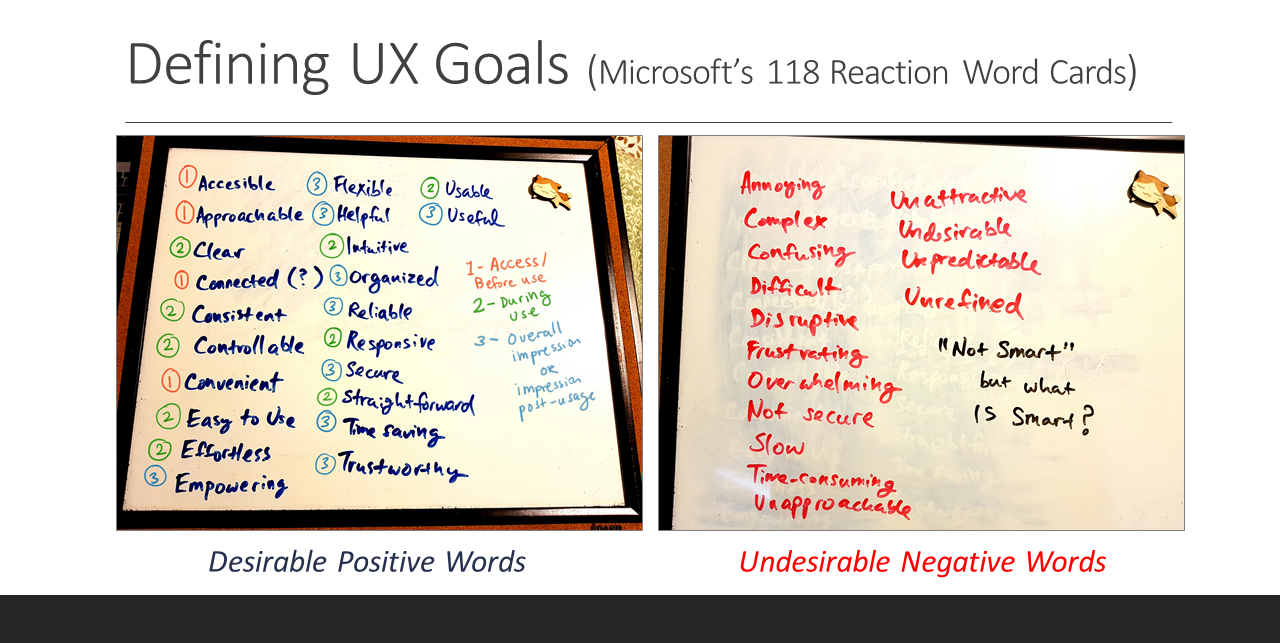 Defining UX Goals (Microsoft's 118 Reaction Word Cards)
1 Accesible
1 Approachable
2 Clear
1 Connected (?)
2 Consistent
2 Controllable
1 Convenient
2 Easy to Use
2 Effortless
3 Empowering
3 Flexible
3 Helpful
2 Intuitive
3 Organized
3 Reliable
2 Responsive
3 Secure
2 Straightforward
3 Time saving
3 Trustworthy
2 Usable
3 Useful
1- Access/
Before use
2- During
Use
3- Overall
impression
or
impression
post-usage
Annoying
Complex
Confusing
Difficult
Disruptive
Frustrating
Overwhelming
Not secure
Slow
Time-consuming
Unapproachable
Unattractive
Undesirable
Unpredictable
Unrefined
"Not Smart"
but what
is Smart?
Desirable Positive Words
Undesirable Negative Words